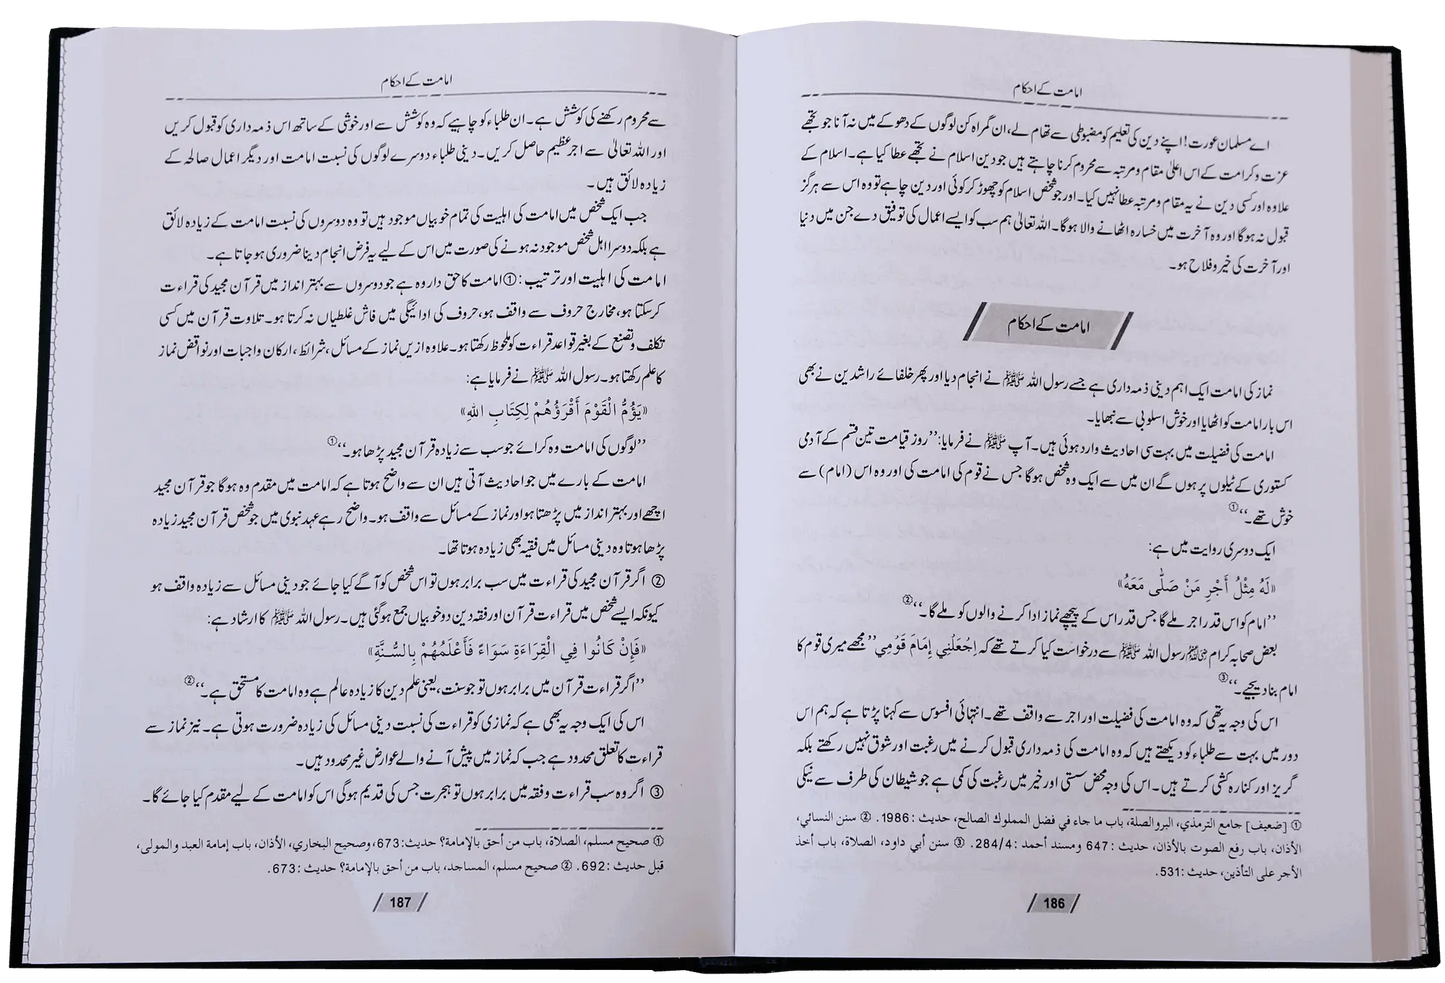 امامت کے احکام
اے مسلمان عورت! اپنے دین کی تعلیم کو مضبوطی سے تھام لے، ان گمراہ کن لوگوں کے دھوکے میں نہ آنا جو تجھے
عزت و کرامت کے اس اعلیٰ مقام و مرتبہ سے محروم کرنا چاہتے ہیں جو دین اسلام نے تجھے عطا کیا ہے۔ اسلام کے
علاوہ اور کسی دین نے یہ مقام و مرتبہ عطا نہیں کیا۔ اور جو شخص اسلام کو چھوڑ کر کوئی اور دین چاہے تو وہ اس سے ہرگز
قبول نہ ہوگا اور وہ آخرت میں خسارہ اٹھانے والا ہوگا۔ اللہ تعالیٰ ہم سب کو ایسے اعمال کی توفیق دے جن میں دنیا
اور آخرت کی خیر و فلاح ہو۔
امامت کے احکام
نماز کی امامت ایک اہم دینی ذمہ داری ہے جسے رسول اللہ ﷺ نے انجام دیا اور پھر خلفائے راشدین نے بھی
اس بار امامت کو اٹھایا اور خوش اسلوبی سے نبھایا۔
امامت کی فضیلت میں بہت سی احادیث وارد ہوئی ہیں۔ آپ ﷺ نے فرمایا: ’’روز قیامت تین قسم کے آدمی
کستوری کے ٹیلوں پر ہوں گے ان میں سے ایک وہ شخص ہوگا جس نے قوم کی امامت کی اور وہ اس (امام) سے
خوش تھے۔‘‘①
ایک دوسری روایت میں ہے:
«لَهُ مِثْلُ أَجْرِ مَنْ صَلّٰى مَعَهُ»
’’امام کو اس قدر اجر ملے گا جس قدر اس کے پیچھے نماز ادا کرنے والوں کو ملے گا۔‘‘②
بعض صحابہ کرام رسول اللہ ﷺ سے درخواست کیا کرتے تھے کہ اِجْعَلْنِي إِمَامَ قَوْمِي ’’مجھے میری قوم کا
امام بنا دیجیے۔‘‘③
اس کی وجہ یہ تھی کہ وہ امامت کی فضیلت اور اجر سے واقف تھے۔ انتہائی افسوس سے کہنا پڑتا ہے کہ ہم اس
دور میں بہت سے طلباء کو دیکھتے ہیں کہ وہ امامت کی ذمہ داری قبول کرنے میں رغبت اور شوق نہیں رکھتے بلکہ
گریز اور کنارہ کشی کرتے ہیں۔ اس کی وجہ محض سستی اور خیر میں رغبت کی کمی ہے جو شیطان کی طرف سے نیکی
① [ضعيف] جامع الترمذي، البر والصلة، باب ما جاء في فضل المملوك الصالح، حديث : 1986. ② سنن النسائي،
الأذان، باب رفع الصوت بالأذان، حديث : 647 ومسند أحمد : 284/4. ③ سنن أبي داود، الصلاة، باب أخذ
الأجر على التأذين، حديث : 531.
186
امامت کے احکام
سے محروم رکھنے کی کوشش ہے۔ ان طلباء کو چاہیے کہ وہ کوشش سے اور خوشی کے ساتھ اس ذمہ داری کو قبول کریں
اور اللہ تعالیٰ سے اجر عظیم حاصل کریں۔ دینی طلباء دوسرے لوگوں کی نسبت امامت اور دیگر اعمال صالحہ کے
زیادہ لائق ہیں۔
جب ایک شخص میں امامت کی اہلیت کی تمام خوبیاں موجود ہیں تو وہ دوسروں کی نسبت امامت کے زیادہ لائق
ہے بلکہ دوسرا اہل شخص موجود نہ ہونے کی صورت میں اس کے لیے یہ فرض انجام دینا ضروری ہو جاتا ہے۔
امامت کی اہلیت اور ترتیب: ① امامت کا حق دار وہ ہے جو دوسروں سے بہتر انداز میں قرآن مجید کی قراءت
کر سکتا ہو، مخارج حروف سے واقف ہو، حروف کی ادائیگی میں فاش غلطیاں نہ کرتا ہو۔ تلاوت قرآن میں کسی
تکلف و تصنع کے بغیر قواعد قراءت کو ملحوظ رکھتا ہو۔ علاوہ ازیں نماز کے مسائل، شرائط، ارکان واجبات اور نواقض نماز
کا علم رکھتا ہو۔ رسول اللہ ﷺ نے فرمایا ہے:
«يَؤُمُّ الْقَوْمَ أَقْرَؤُهُمْ لِكِتَابِ اللّٰهِ»
’’لوگوں کی امامت وہ کرائے جو سب سے زیادہ قرآن مجید پڑھا ہو۔‘‘①
امامت کے بارے میں جو احادیث آتی ہیں ان سے واضح ہوتا ہے کہ امامت میں مقدم وہ ہوگا جو قرآن مجید
اچھے اور بہتر انداز میں پڑھتا ہو اور نماز کے مسائل سے واقف ہو۔ واضح رہے عہد نبوی میں جو شخص قرآن مجید زیادہ
پڑھا ہوتا وہ دینی مسائل میں فقیہ بھی زیادہ ہوتا تھا۔
② اگر قرآن مجید کی قراءت میں سب برابر ہوں تو اس شخص کو آگے کیا جائے جو دینی مسائل سے زیادہ واقف ہو
کیونکہ ایسے شخص میں قراءت قرآن اور فقہ دین دو خوبیاں جمع ہو گئی ہیں۔ رسول اللہ ﷺ کا ارشاد ہے:
«فَإِنْ كَانُوا فِي الْقِرَاءَةِ سَوَاءً فَأَعْلَمُهُمْ بِالسُّنَّةِ»
’’اگر قراءت قرآن میں برابر ہوں تو جو سنت، یعنی علم دین کا زیادہ عالم ہے وہ امامت کا مستحق ہے۔‘‘②
اس کی ایک وجہ یہ بھی ہے کہ نمازی کو قراءت کی نسبت دینی مسائل کی زیادہ ضرورت ہوتی ہے۔ نیز نماز سے
قراءت کا تعلق محدود ہے جب کہ نماز میں پیش آنے والے عوارض غیر محدود ہیں۔
③ اگر وہ سب قراءت و فقہ میں برابر ہوں تو ہجرت جس کی قدیم ہوگی اس کو امامت کے لیے مقدم کیا جائے گا۔
① صحيح مسلم، الصلاة، باب من أحق بالإمامة؟ حديث: 673، وصحيح البخاري، الأذان، باب إمامة العبد والمولى،
قبل حديث : 692. ② صحيح مسلم، المساجد، باب من أحق بالإمامة؟ حديث : 673.
187